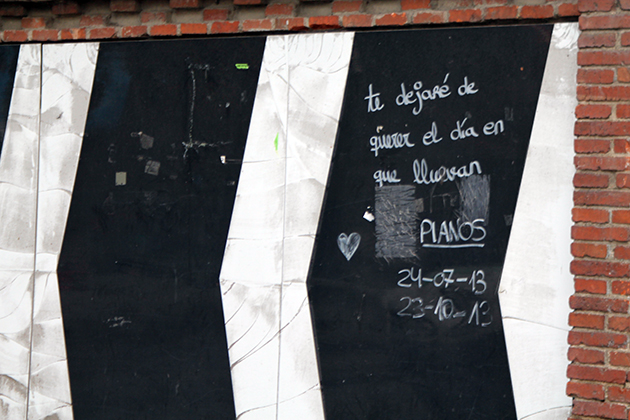 te dejaré de
querer el día en
que lluevan
PIANOS
24-07-13
23-10-13